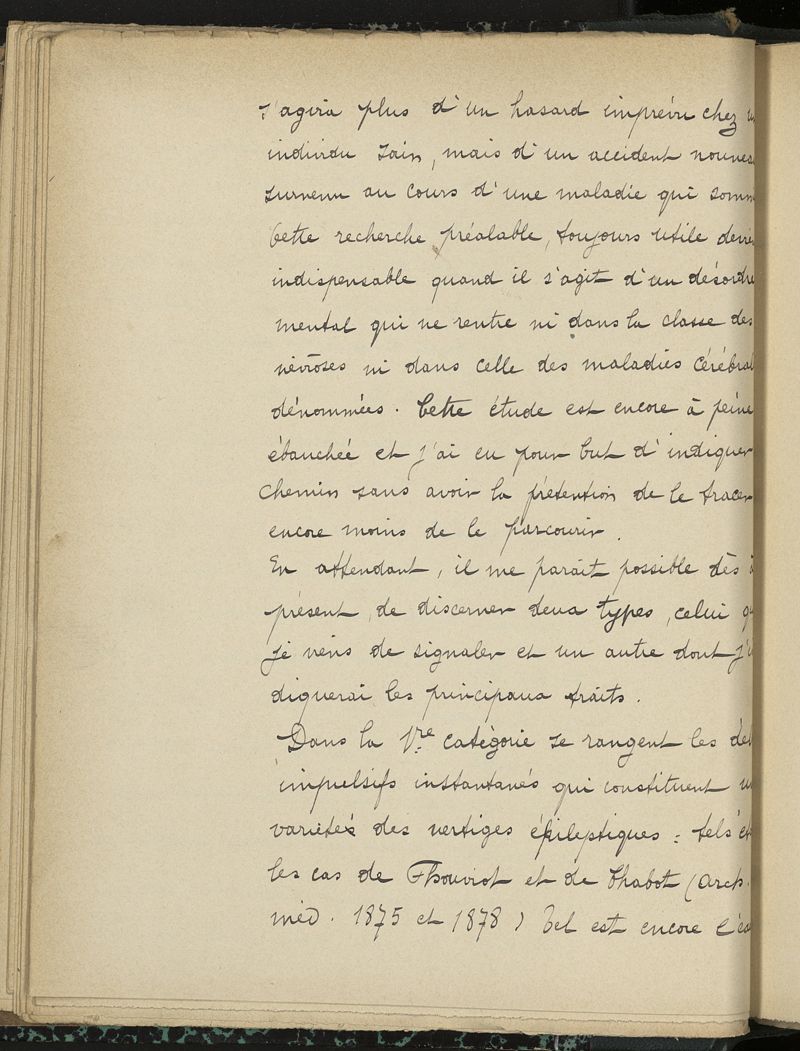 s'agira plus d'un hasard imprévu chez u
individu sain, mais d'un accident nouvea
survenu au cours d'une maladie qui somm
Cette recherche préalable, toujours utile devie
indispensable quand il s'agit d'un désordre
mental qui ne rentre ni dans la classe des
névroses ni dans celle des maladies cérébral
dénommées. Cette étude est encore à peine
ébauchée et j'ai eu pour but d'indiquer
chemin sans avoir la prétention de le tracer
encore moins de le parcourir.
En attendant, il me parait possible dès à
présent, de discerner deux types, celui q
je viens de signaler et un autre dont j'i
diquerai les principaux traits.
Dans la 1re catégorie se rangent les dél
impulsifs instantanés qui constituent u
variétés des vertiges épileptiques : tels ét
les cas de Thouviot et de Chabot (Arch.
méd. 1875 et 1878) Tel est encore l'éc